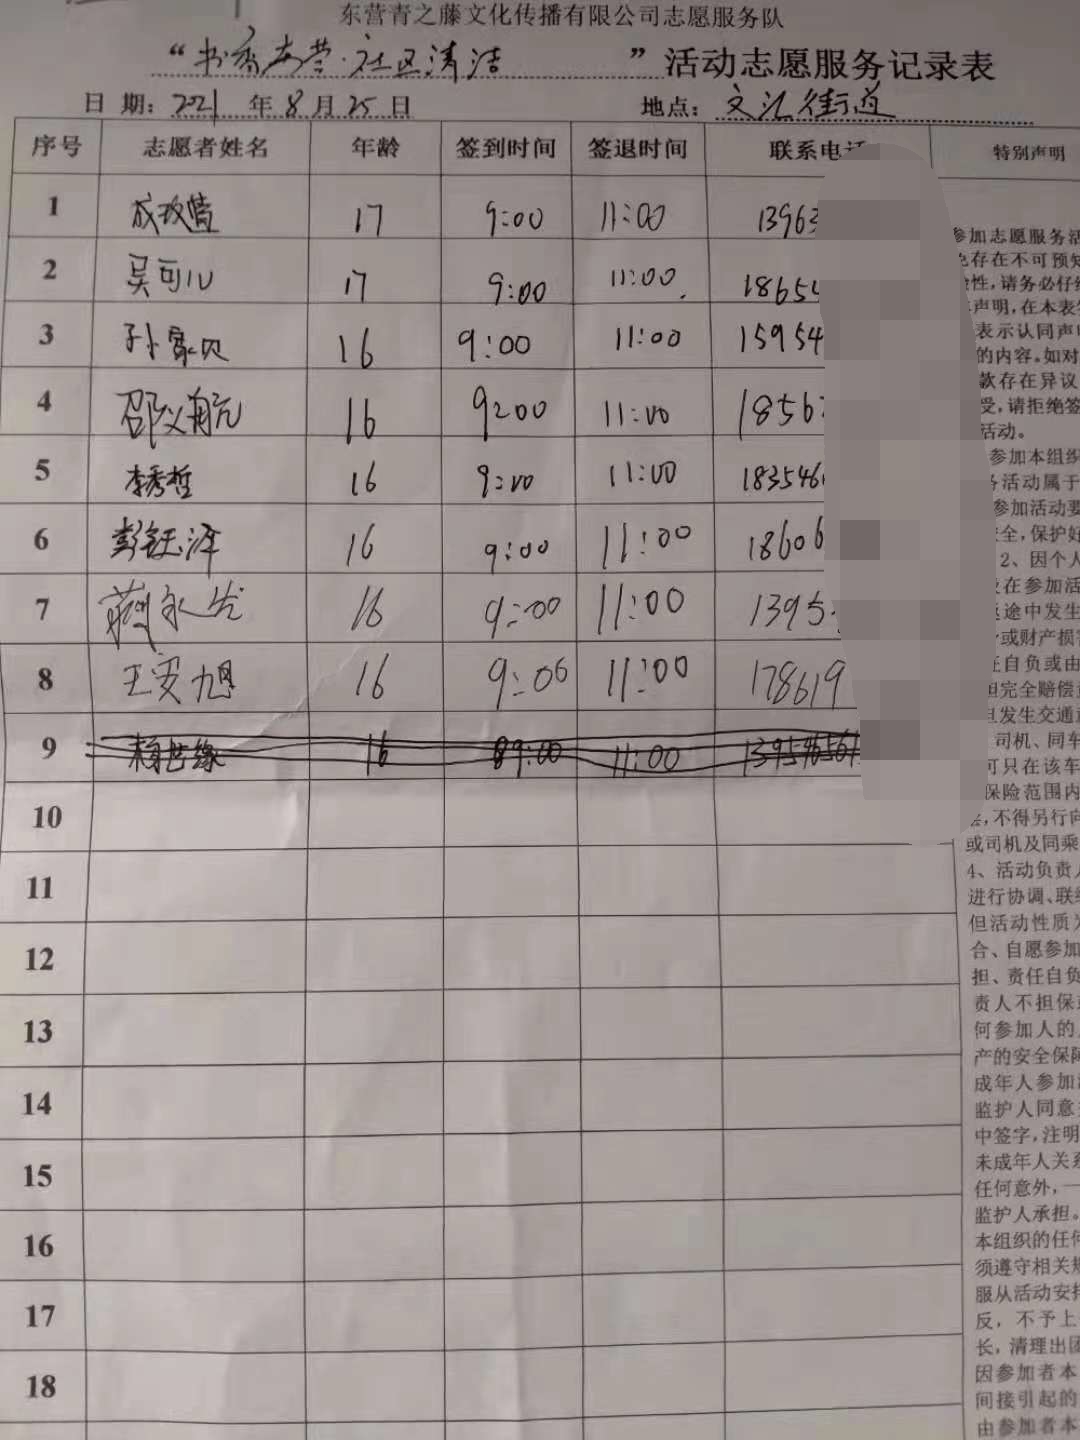 东营青之藤文化传播有限公司志愿服务队
“书香东营·社区清洁”活动志愿服务记录表
日 期: 2021 年 8 月 25 日 地点: 文汇街道
序号 志愿者姓名 年龄 签到时间 签退时间 联系电话 特别声明
1 成玫萱 17 9:00 11:00 1396
2 吴可儿 17 9:00 11:00 18654
3 孙家贝 16 9:00 11:00 15954
4 邵义航 16 9:00 11:00 1856
5 李秀哲 16 9:00 11:00 183546
6 彭钰泽 16 9:00 11:00 18606
7 蒋永发 16 9:00 11:00 1395
8 王奕旭 16 9:00 11:00 178619
9 16 9:00 11:00 139546561
10
11
12
13
14
15
16
17
18
参加志愿服务活
存在不可预知
性,请务必仔细
声明,在本表
表示认同声明
的内容。如对
款存在异议
受,请拒绝签
活动。
参加本组织
活动属于
参加活动要
全,保护好
2、因个人
在参加活
途中发生
或财产损害
自负或由
完全赔偿
发生交通
司机、同车
可只在该车
保险范围内
,不得另行向
或司机及同乘
4、活动负责人
进行协调、联络
但活动性质为
合、自愿参加
担、责任自负
责人不担保
何参加人的
产的安全保障
成年人参加
监护人同意
中签字,注明
未成年人关系
任何意外,一
监护人承担。
本组织的任何
须遵守相关规
服从活动安排
反,不予上
长,清理出团
因参加者本
间接引起的
由参加者本